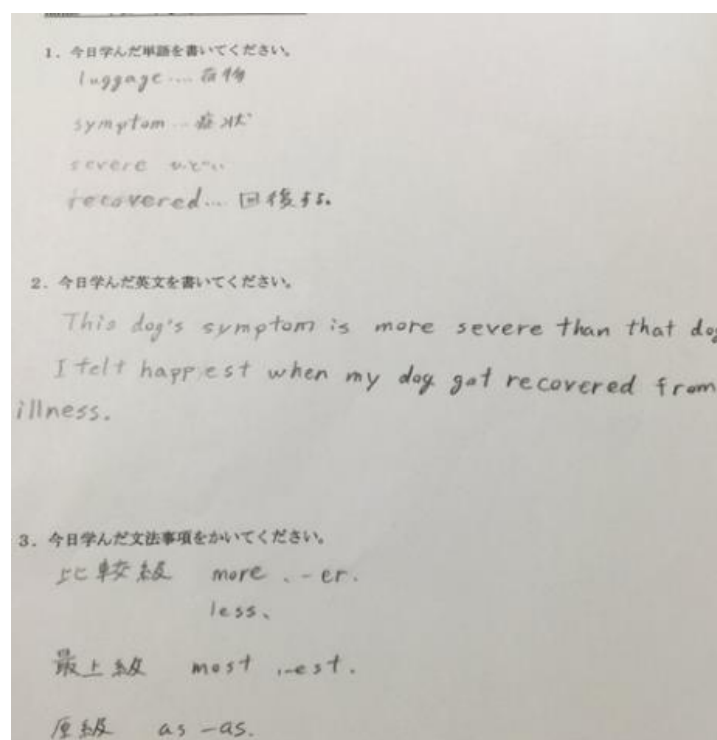 1. 今日学んだ単語を書いてください。
luggage.... 荷物
symptom... 症状
severe ひどい
recovered... 回復する。
2. 今日学んだ英文を書いてください。
This dog's symptom is more severe than that dog
I felt happiest when my dog got recovered from
illness.
3. 今日学んだ文法事項をかいてください。
比較級 more 、-er.
less、
最上級 most 、-est.
原級 as -as.